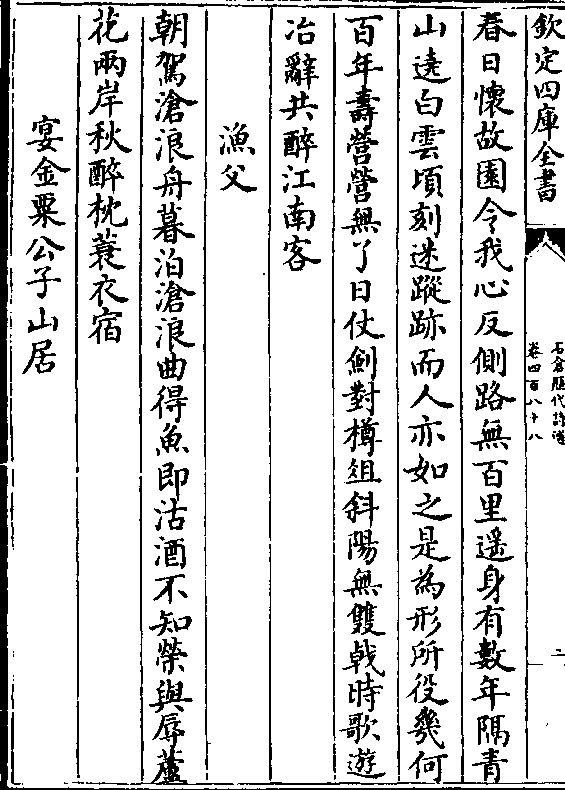 欽定四庫全書
石倉歷代詩選
卷四百八十八
二
春日懷故園令我心反側路無百里遥身有數年隔青
山遠白雲頃刻迷蹤跡而人亦如之是為形所役幾何
百年壽營營無了日仗劍對樽俎斜陽無雙戟時歌遊
冶辭共醉江南客
漁父
朝駕滄浪舟暮泊滄浪曲得魚即沽酒不知榮與辱蘆
花兩岸秋醉枕蓑衣宿
宴金粟公子山居